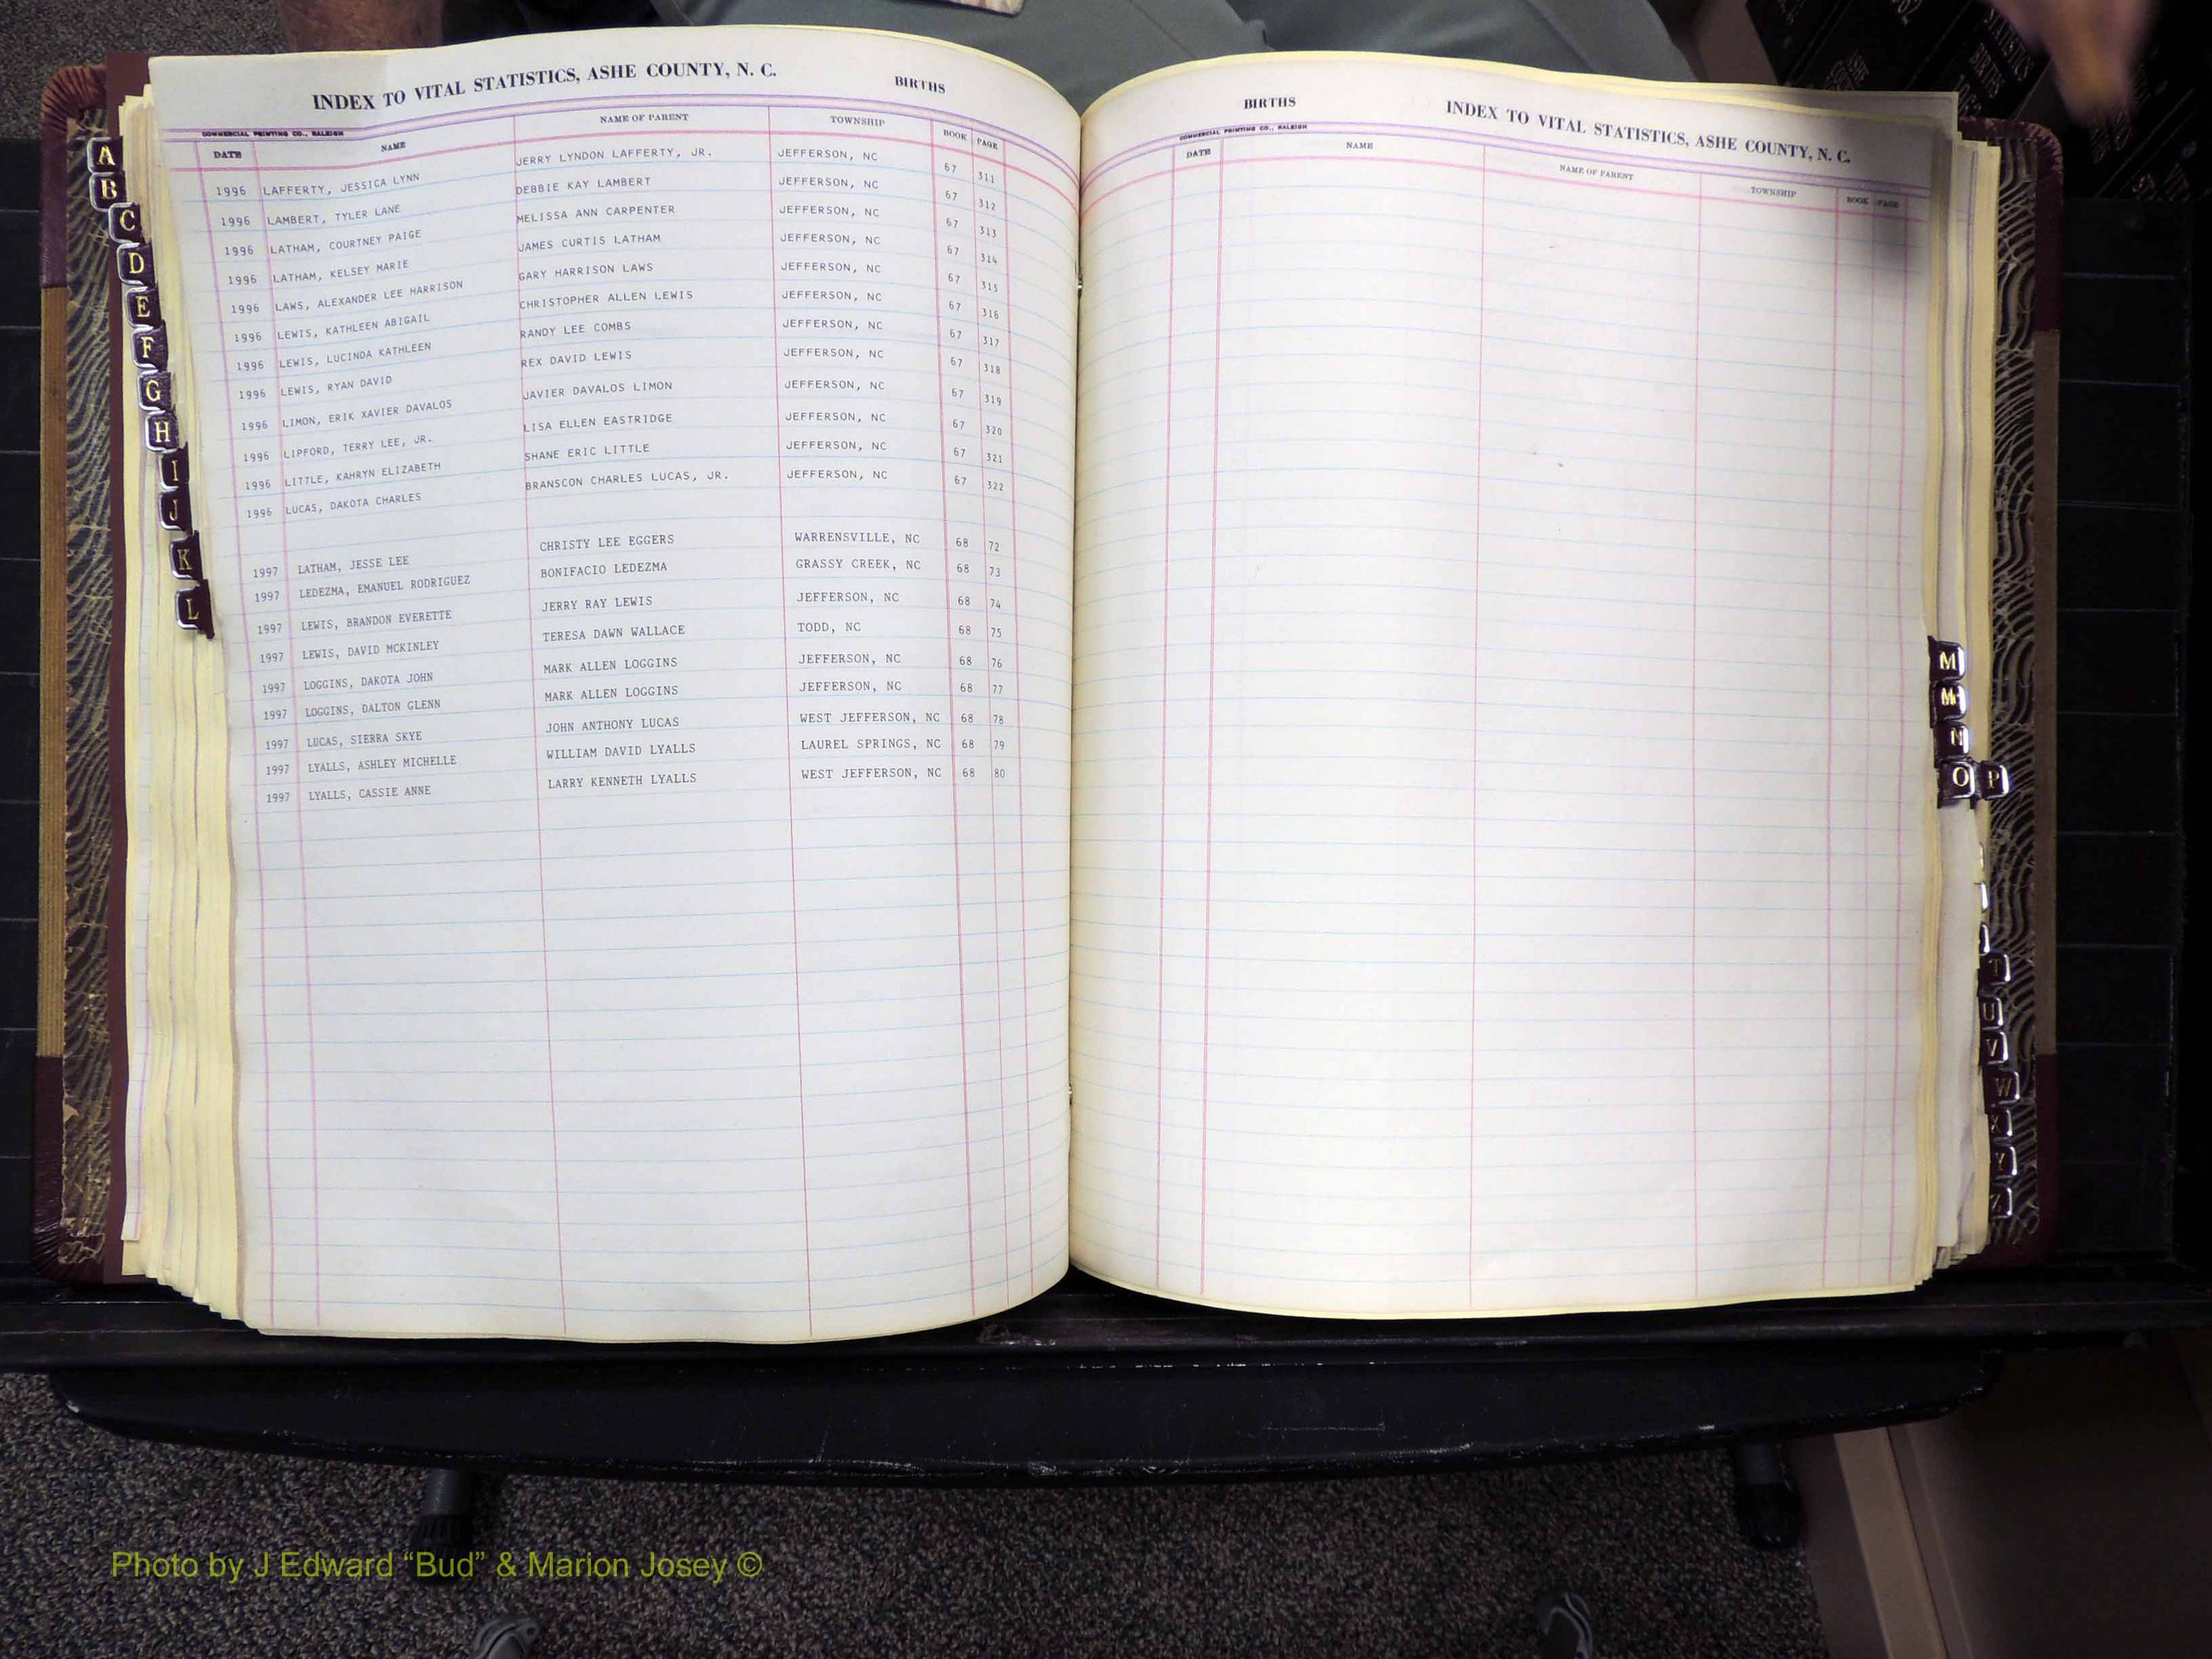 INDEX TO VITAL STATISTICS, ASHE COUNTY, N. C. BIRTHS
COMMERCIAL PRINTING CO., RALEIGH
DATE NAME NAME OF PARENT TOWNSHIP BOOK PAGE
1996 LAFFERTY, JESSICA LYNN JERRY LYNDON LAFFERTY, JR. JEFFERSON, NC 67 311
1996 LAMBERT, TYLER LANE DEBBIE KAY LAMBERT JEFFERSON, NC 67 312
1996 LATHAM, COURTNEY PAIGE MELISSA ANN CARPENTER JEFFERSON, NC 67 313
1996 LATHAM, KELSEY MARIE JAMES CURTIS LATHAM JEFFERSON, NC 67 314
1996 LAWS, ALEXANDER LEE HARRISON GARY HARRISON LAWS JEFFERSON, NC 67 315
1996 LEWIS, KATHLEEN ABIGAIL CHRISTOPHER ALLEN LEWIS JEFFERSON, NC 67 316
1996 LEWIS, LUCINDA KATHLEEN RANDY LEE COMBS JEFFERSON, NC 67 317
1996 LEWIS, RYAN DAVID REX DAVID LEWIS JEFFERSON, NC 67 318
1996 LIMON, ERIK XAVIER DAVALOS JAVIER DAVALOS LIMON JEFFERSON, NC 67 319
1996 LIPFORD, TERRY LEE, JR. LISA ELLEN EASTRIDGE JEFFERSON, NC 67 320
1996 LITTLE, KAHRYN ELIZABETH SHANE ERIC LITTLE JEFFERSON, NC 67 321
1996 LUCAS, DAKOTA CHARLES BRANSCON CHARLES LUCAS, JR. JEFFERSON, NC 67 322
1997 LATHAM, JESSE LEE CHRISTY LEE EGGERS WARRENSVILLE, NC 68 72
1997 LEDEZMA, EMANUEL RODRIGUEZ BONIFACIO LEDEZMA GRASSY CREEK, NC 68 73
1997 LEWIS, BRANDON EVERETTE JERRY RAY LEWIS JEFFERSON, NC 68 74
1997 LEWIS, DAVID MCKINLEY TERESA DAWN WALLACE TODD, NC 68 75
1997 LOGGINS, DAKOTA JOHN MARK ALLEN LOGGINS JEFFERSON, NC 68 76
1997 LOGGINS, DALTON GLENN MARK ALLEN LOGGINS JEFFERSON, NC 68 77
1997 LUCAS, SIERRA SKYE JOHN ANTHONY LUCAS WEST JEFFERSON, NC 68 78
1997 LYALLS, ASHLEY MICHELLE WILLIAM DAVID LYALLS LAUREL SPRINGS, NC 68 79
1997 LYALLS, CASSIE ANNE LARRY KENNETH LYALLS WEST JEFFERSON, NC 68 80
A
B
C
D
E
F
G
H
I
J
K
L
BIRTHS INDEX TO VITAL STATISTICS, ASHE COUNTY, N. C.
COMMERCIAL PRINTING CO., RALEIGH
DATE NAME NAME OF PARENT TOWNSHIP BOOK PAGE
M
Mc
N
O P
T
U
V
W
X
Y
Z
STATISTICS
BIRTHS
ASHE
Photo by J Edward “Bud” & Marion Josey ©